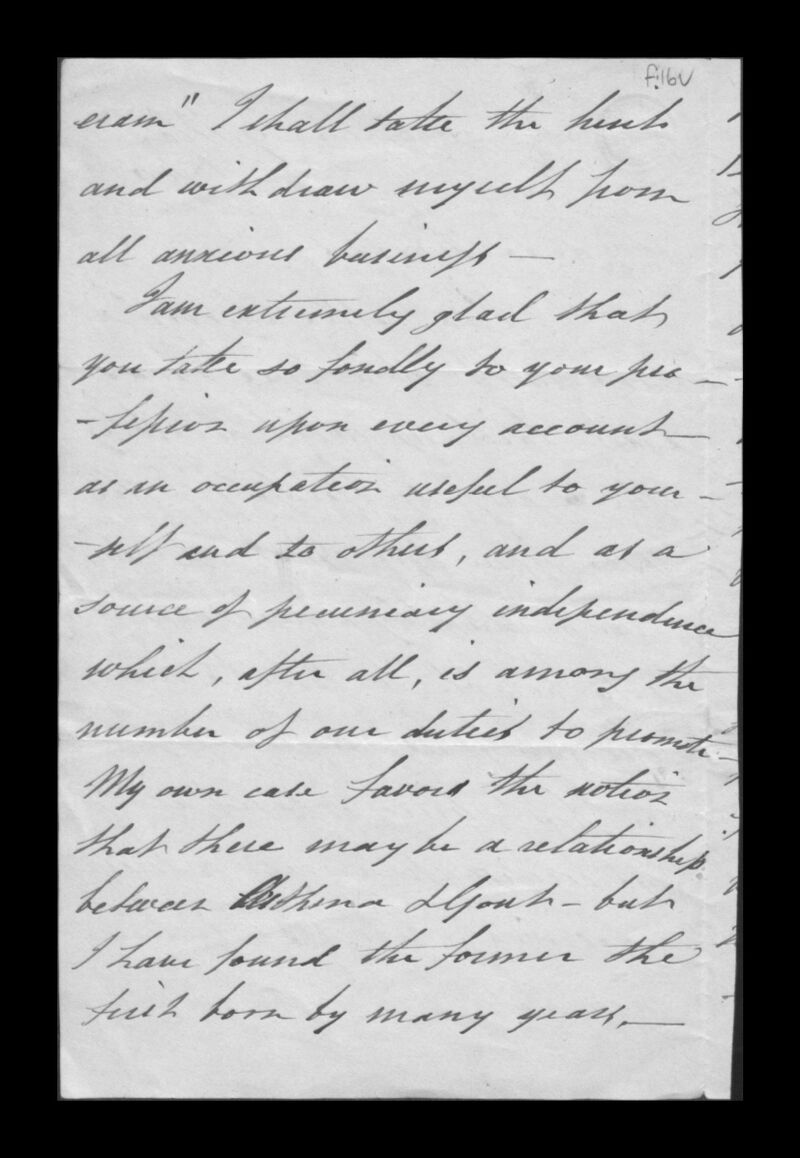 f.16v
eram" I shall take the hint
and withdraw myself from
all anxious business —
I am extremely glad that
you take so fondly to your pro-
-fession upon every account —
as an occupation useful to your-
-self and to others, and as a
source of pecuniary independence
which, after all, is among the
number of our duties to promote —
My own case favors the notion
that there may be a relationship
between Asthma & Gout – but
I have found the former the
first born by many years. —